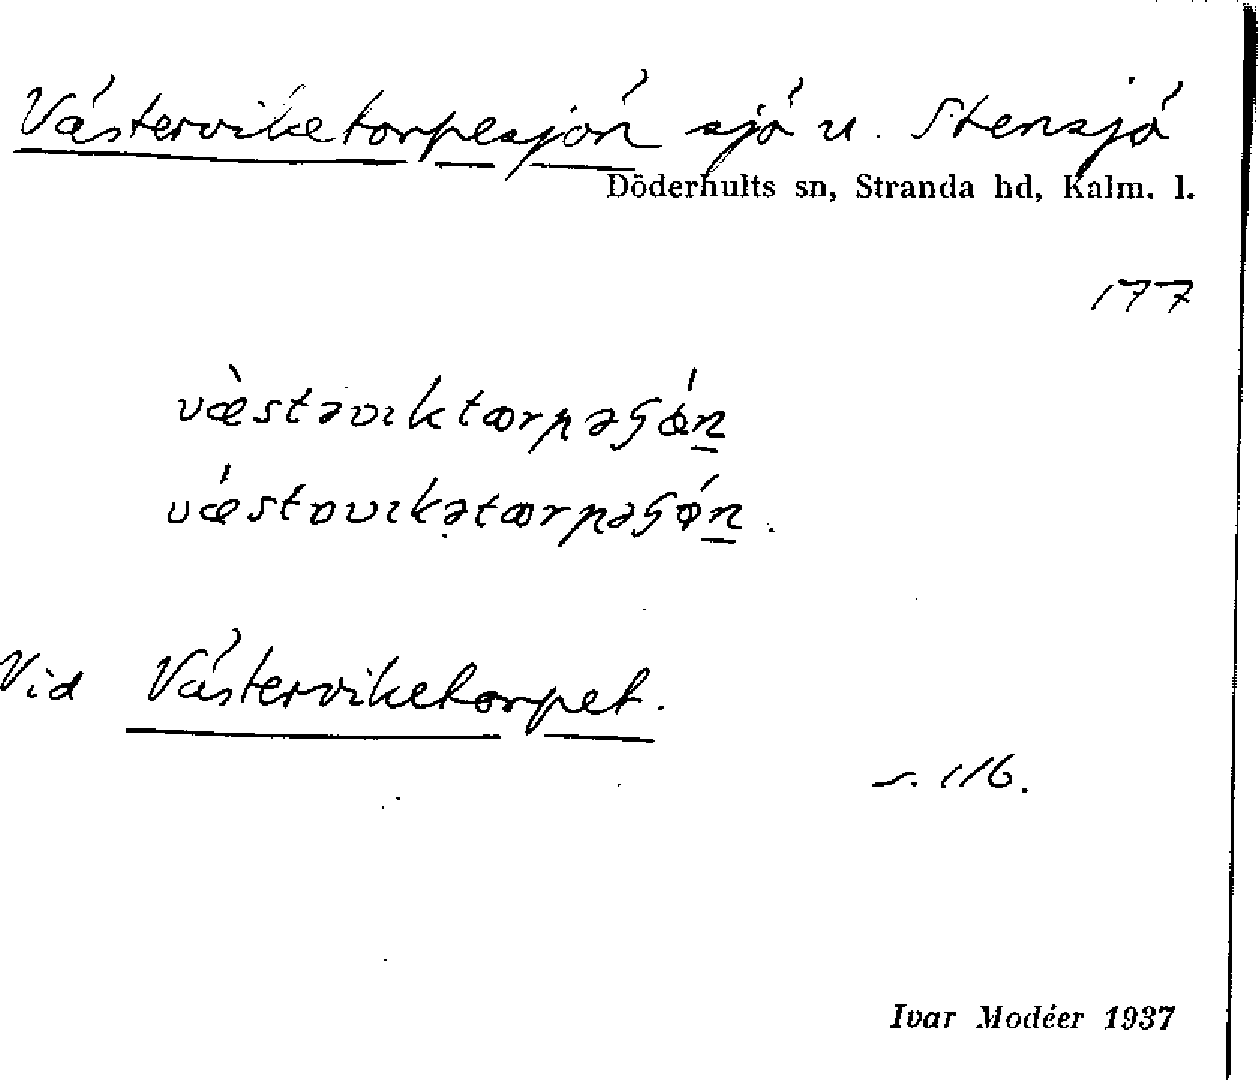 Västerviketorpesjön sjö u. Stensjö
Döderhults sn, Stranda hd, Kalm. l.
177
væ̀stəvıktœrpəʂǿn
vǽstɒvıkətœrpəʂǿn.
Vid Västerviketorpet.
s. 116.
Ivar Modéer 1937